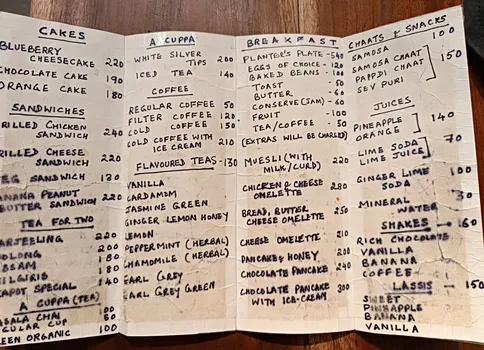 CAKES
BLUEBERRY
CHEESECAKE 220
CHOCOLATE CAKE 190
ORANGE CAKE 180
SANDWICHES
GRILLED CHICKEN
SANDWICH 240
GRILLED CHEESE
SANDWICH 220
VEG SANDWICH 130
BANANA PEANUT
BUTTER SANDWICH 220
TEA FOR TWO
DARJEELING 220
OOLONG 200
ASSAM 180
NILGIRIS 180
TEAPOT SPECIAL 140
A CUPPA (TEA)
MASALA CHAI 50
REGULAR CUP
GREEN ORGANIC 100
A CUPPA
WHITE SILVER
TIPS 200
ICED TEA 140
COFFEE
REGULAR COFFEE 50
FILTER COFFEE 120
COLD COFFEE 150
COLD COFFEE WITH
ICE CREAM 210
FLAVOURED TEAS - 130
VANILLA
CARDAMOM
JASMINE GREEN
GINGER LEMON HONEY
LEMON
PEPPERMINT (HERBAL)
CHAMOMILE (HERBAL)
EARL GREY
EARL GREY GREEN
BREAKFAST
PLANTER'S PLATE - 540
EGGS OF CHOICE - 120
BAKED BEANS - 100
TOAST - 50
BUTTER - 60
CONSERVE (JAM) - 60
FRUIT - 100
TEA/COFFEE - 50
(EXTRAS WILL BE CHARGED)
MUESLI (WITH
MILK/CURD) 220
CHICKEN & CHEESE
OMELETTE 280
BREAD, BUTTER
CHEESE OMELETTE 250
CHEESE OMELETTE 210
PANCAKE & HONEY 200
CHOCOLATE PANCAKE 240
CHOCOLATE PANCAKE
WITH ICE-CREAM 300
CHAATS & SNACKS
SAMOSA 100
SAMOSA CHAAT
PAPDI CHAAT 150
SEV PURI
JUICES
PINEAPPLE
ORANGE 140
LIME SODA
LIME JUICE 70
GINGER LIME
SODA 100
MINERAL
WATER 30
SHAKES - 160
RICH CHOCOLATE
VANILLA
BANANA
COFFEE
LASSIS - 150
SWEET
PINEAPPLE
BANANA
VANILLA